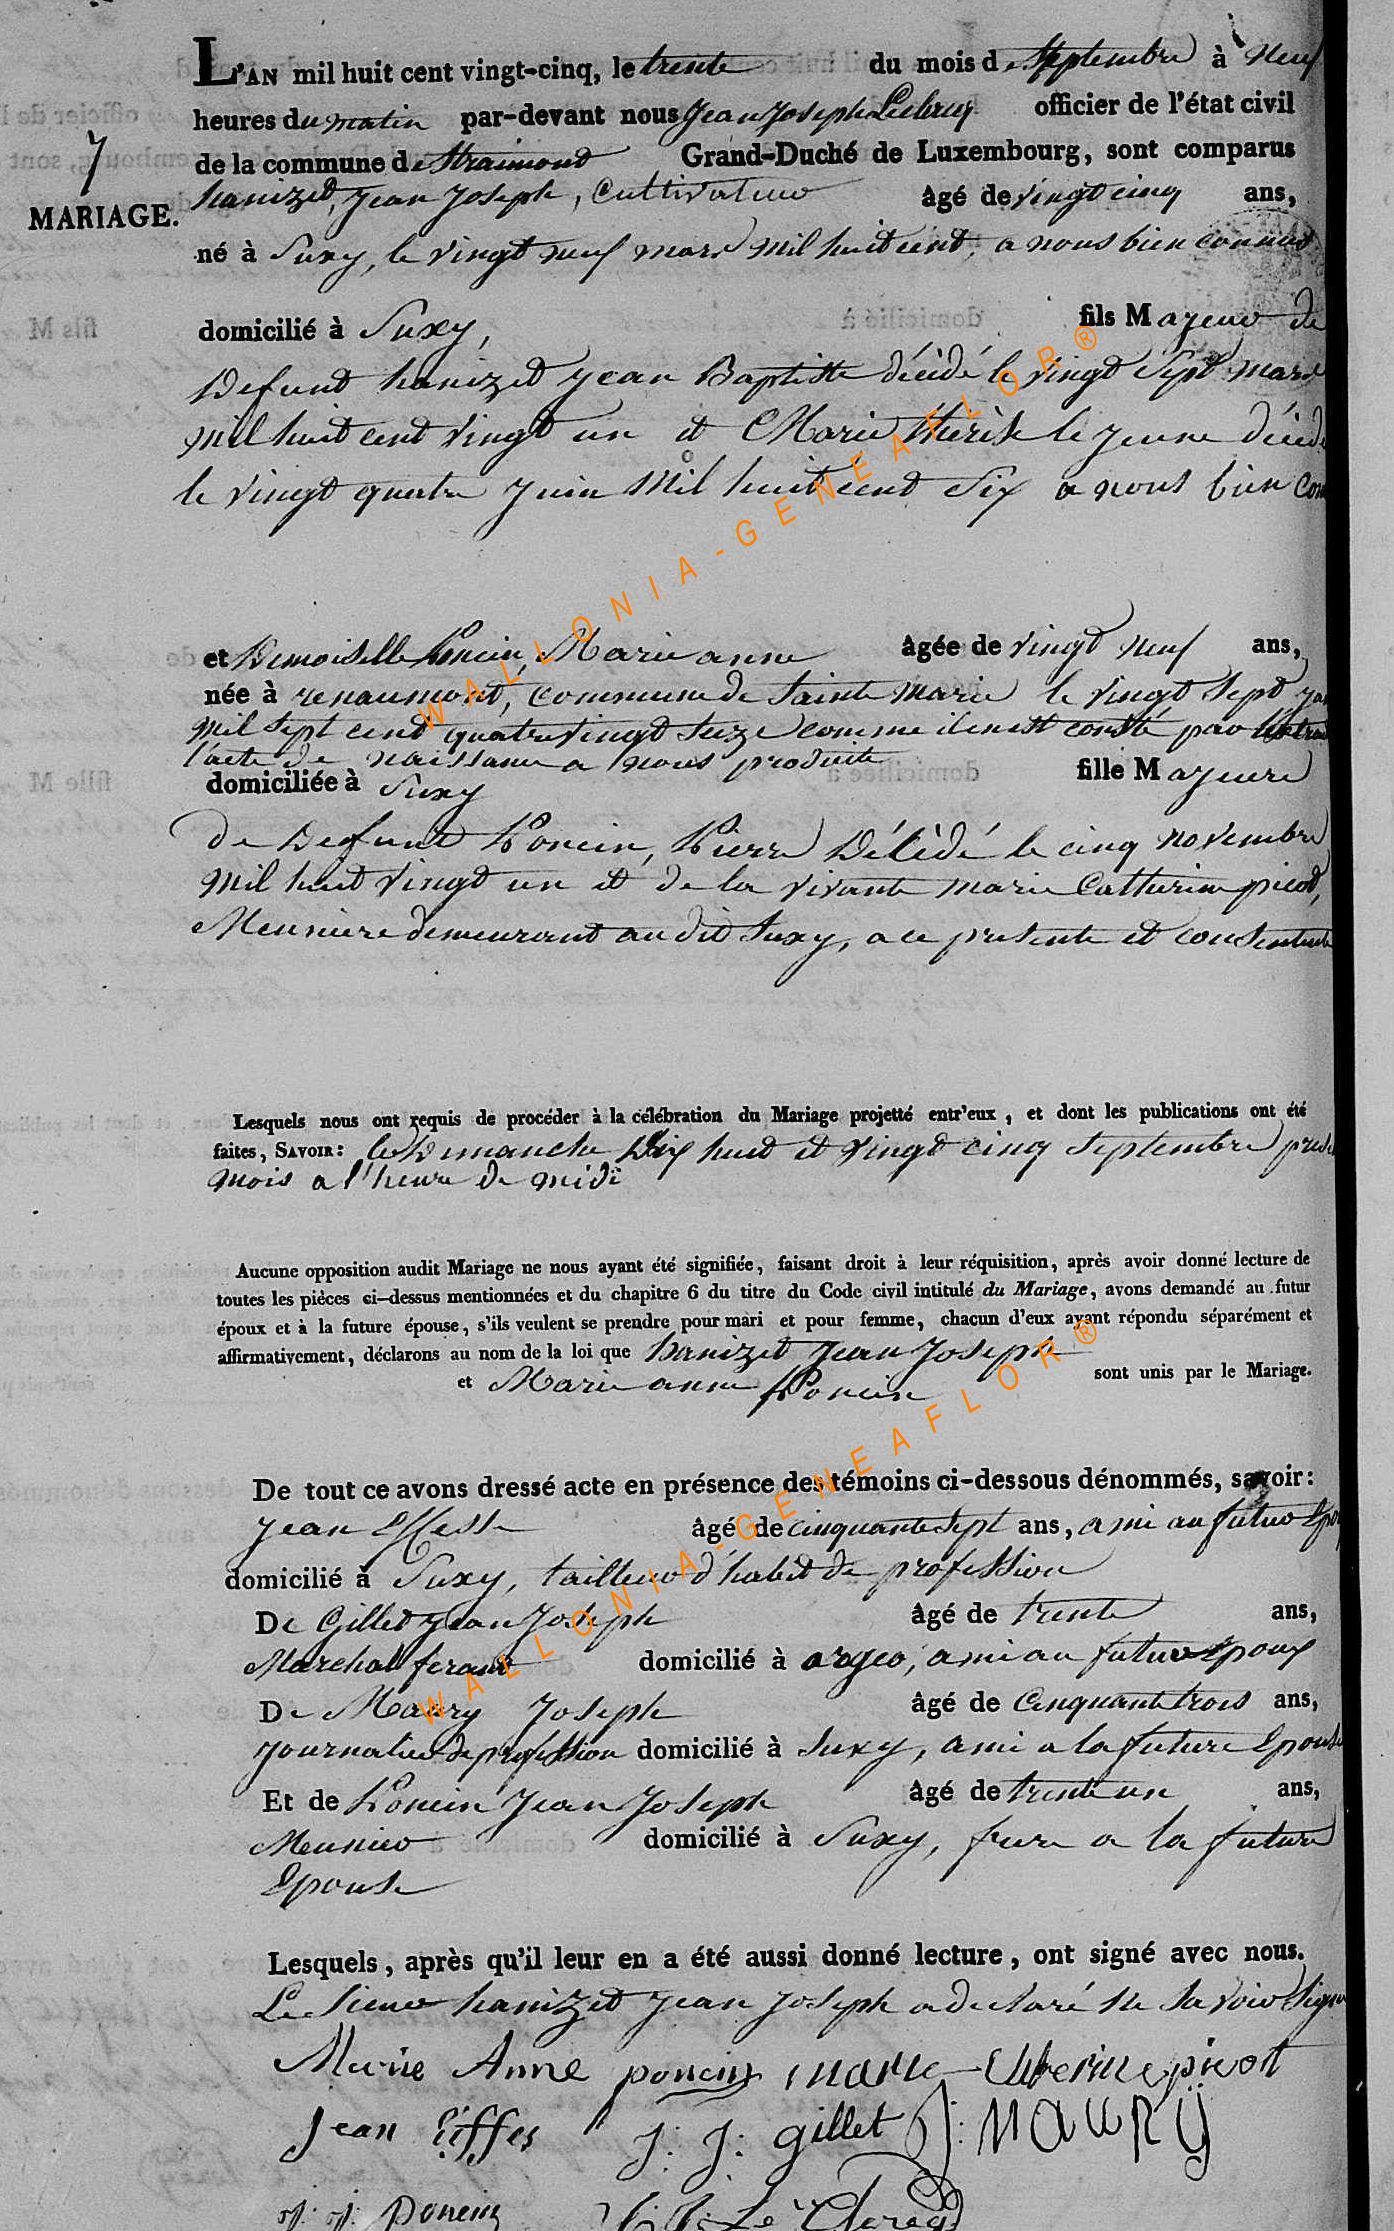 L'AN mil huit cent vingt-cinq, le trente du mois de Septembre à neuf
heures du matin par-devant nous Jean Joseph officier de l'état civil
de la commune de Straimont Grand-Duché de Luxembourg, sont comparus
7
MARIAGE.
hanizet, Jean Joseph, Cultivateur âgé de vingt cinq ans,
né à Suxy, le vingt neuf mars mil huit cent, a nous bien connus
domicilié à Suxy, fils Majeur de
Defunt hanizet Jean Baptiste décédé le vingt Sept mars
mil huit cent vingt un et Marie therese le jeune décédé
le vingt quatre Juin Mil huit cent Six a nous bien
et Demoiselle Poncin, Marie anne âgée de vingt neuf ans,
née à renaumont, commune de Sainte marie le vingt Sept
mil sept cent quatre vingt seize comme il en est consté par
l'acte de naissance a nous produite
domiciliée à Suxy fille Majeure
de Defunt Poncin, Pierre Décédé le cinq novembre
Mil huit vingt un et de la vivante marie Catherine picot,
Meuniere demeurant audit Suxy, a ce presente et consentente
Lesquels nous ont requis de procéder à la célébration du Mariage projetté entr'eux, et dont les publications ont été
faites, SAVOIR: les Dimanche Dix huit et vingt cinq Septembre
mois a l'heure de midi
Aucune opposition audit Mariage ne nous ayant été signifiée, faisant droit à leur réquisition, après avoir donné lecture de
toutes les pièces ci-dessus mentionnées et du chapitre 6 du titre du Code civil intitulé du Mariage, avons demandé au futur
époux et à la future épouse, s'ils veulent se prendre pour mari et pour femme, chacun d'eux ayant répondu séparément et
affirmativement, déclarons au nom de la loi que hanizet Jean Joseph
et Marie anne Poncin sont unis par le Mariage.
De tout ce avons dressé acte en présence des témoins ci-dessous dénommés, savoir:
Jean âgé de cinquante sept ans, ami au futur
domicilié à Suxy, tailleur d'habit de profession
De Gillet Jean Joseph âgé de trente ans,
Marchal ferant domicilié à orgeo, ami au futur Epoux
De Maury Joseph âgé de Cinquante trois ans,
Journalier de profession domicilié à Suxy, ami a la future Epouse
Et de Poncin Jean Joseph âgé de trente un ans,
Meunier domicilié à Suxy, frere a la future
Epouse
Lesquels, après qu'il leur en a été aussi donné lecture, ont signé avec nous.
Le Sieur hanizet Jean Joseph a declaré ne Savoir Signer
Marie Anne poncin marie picot
Jean Eiffes J: J: gillet J: MAURY
J: J: Poncin
WALLONIA-GENEAFLOR®
WALLONIA-GENEAFLOR®